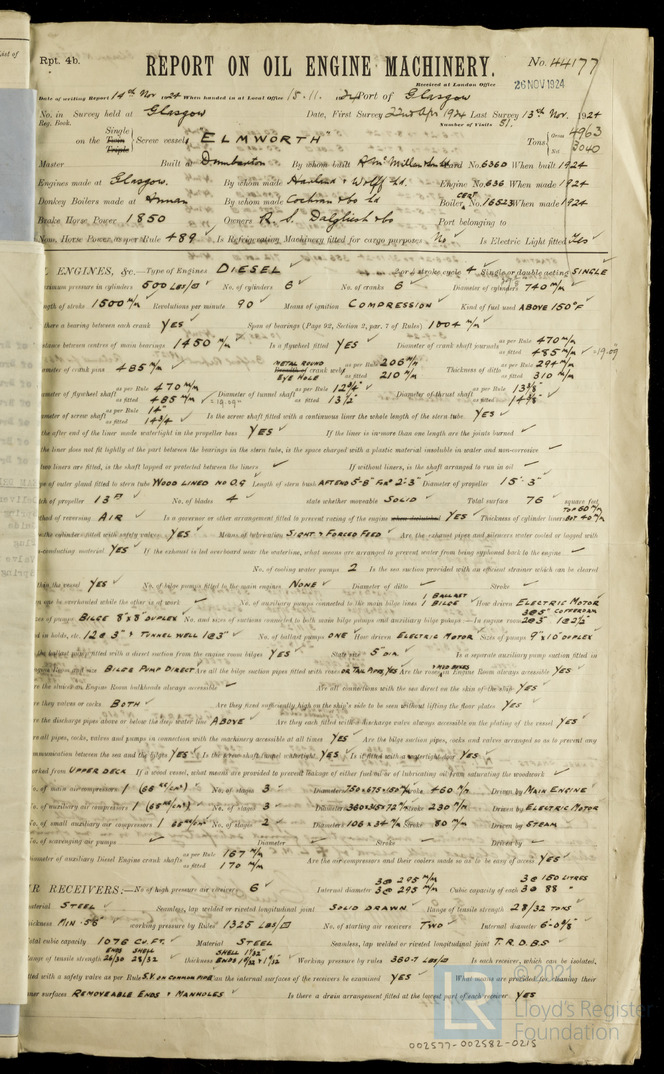 Rpt. 4b.
REPORT ON OIL ENGINE MACHINERY.
No. 44177
Received at London Office
26 NOV 1924
Date of writing Report 14th Nov 1924 When handed in at Local Office 15.11.1924 Port of Glasgow
No. in Survey held at Glasgow Date, First Survey 22nd Apr 1924 Last Survey 13th Nov. 1924
Reg. Book. Number of Visits 51
Single
on the Twin Screw vessel "ELMWORTH" Tons Gross 4963
Triple Net 3040
Master Built at Dumbarton By whom built Yard No. 6360 When built 1924
Engines made at Glasgow. By whom made Harland & Wolff Ld. Engine No. 636 When made 1924
Donkey Boilers made at Annan By whom made Cochran & Co Ld Boiler No. 16523 When made 1924
Brake Horse Power 1850 Owners R. S. Dalgliesh & Co Port belonging to
Nom. Horse Power as per Rule 489 Is Refrigerating Machinery fitted for cargo purposes No Is Electric Light fitted Yes
ENGINES, &c.—Type of Engines DIESEL 2 or 4 stroke cycle 4 Single or double acting SINGLE
aximum pressure in cylinders 500 LBS/□ No. of cylinders 6 No. of cranks 6 Diameter of cylinders 740 m/m
ngth of stroke 1500 m/m Revolutions per minute 90 Means of ignition COMPRESSION Kind of fuel used ABOVE 150°F
there a bearing between each crank YES Span of bearings (Page 92, Section 2, par. 7 of Rules) 1004 m/m
tance between centres of main bearings 1450 m/m Is a flywheel fitted YES Diameter of crank shaft journals as per Rule 470 m/m as fitted 485 m/m
ameter of crank pins 485 m/m METAL ROUND EYE HOLE crank webs as per Rule 206 m/m as fitted 210 m/m Thickness of ditto as per Rule 294 m/m as fitted 310 m/m
ameter of flywheel shaft as per Rule 470 m/m as fitted 485 m/m Diameter of tunnel shaft as per Rule 12¾" as fitted 13½" Diameter of thrust shaft as per Rule as fitted
ameter of screw shaft as per Rule 14" as fitted 14¾" Is the screw shaft fitted with a continuous liner the whole length of the stern tube YES
the after end of the liner made watertight in the propeller boss YES If the liner is in more than one length are the joints burned
the liner does not fit tightly at the part between the bearings in the stern tube, is the space charged with a plastic material insoluble in water and non-corrosive
two liners are fitted, is the shaft lapped or protected between the liners If without liners, is the shaft arranged to run in oil
pe of outer gland fitted to stern tube WOOD LINED NO O.G Length of stern bush AFT END 5'-8" FOR 2'-3" Diameter of propeller 15'-3"
tch of propeller 13 FT No. of blades 4 state whether moveable SOLID Total surface 76 square feet
thod of reversing AIR Is a governor or other arrangement fitted to prevent racing of the engine when declutched YES Thickness of cylinder liners TOP 60 m/m BOT 40 m/m
the cylinders fitted with safety valves YES Means of lubrication SIGHT & FORCED FEED Are the exhaust pipes and silencers water cooled or lagged with
n-conducting material YES If the exhaust is led overboard near the waterline, what means are arranged to prevent water from being syphoned back to the engine
No. of cooling water pumps 2 Is the sea suction provided with an efficient strainer which can be cleared
thin the vessel YES No. of bilge pumps fitted to the main engines NONE Diameter of ditto Stroke
n one be overhauled while the other is at work No. of auxiliary pumps connected to the main bilge lines 1 BALLAST 1 BILGE How driven ELECTRIC MOTOR
zes of pumps BILGE 8"x8" DUPLEX No. and sizes of suctions connected to both main bilge pumps and auxiliary bilge pumps—In engine room 2@3" 1@2½"
3@5" COFFERDAM
nd in holds, etc. 12@3" & TUNNEL WELL 1@3" No. of ballast pumps ONE How driven ELECTRIC MOTOR Sizes of pumps 9"x10" DUPLEX
the ballast pump fitted with a direct suction from the engine room bilges YES State size 5" DIA Is a separate auxiliary pump suction fitted in
ngine Room and size BILGE PUMP DIRECT Are all the bilge suction pipes fitted with roses OR TAIL PIPES, YES & MUD BOXES Are the roses in Engine Room always accessible YES
re the sluices on Engine Room bulkheads always accessible Are all connections with the sea direct on the skin of the ship YES
re they valves or cocks BOTH Are they fixed sufficiently high on the ship's side to be seen without lifting the floor plates YES
re the discharge pipes above or below the deep water line ABOVE Are they each fitted with a discharge valve always accessible on the plating of the vessel YES
re all pipes, cocks, valves and pumps in connection with the machinery accessible at all times YES Are the bilge suction pipes, cocks and valves arranged so as to prevent any
mmunication between the sea and the bilges YES Is the screw shaft tunnel watertight YES Is it fitted with a watertight door YES
orked from UPPER DECK If a wood vessel, what means are provided to prevent leakage of either fuel oil or of lubricating oil from saturating the woodwork
o. of main air compressors 1 (65 KG/CM²) No. of stages 3 Diameters 750x675x150 m/m Stroke 460 m/m Driven by MAIN ENGINE
o. of auxiliary air compressors 1 (65 KG/CM²) No. of stages 3 Diameters 360x305x72 m/m Stroke 230 m/m Driven by ELECTRIC MOTOR
o. of small auxiliary air compressors 1 No. of stages 2 Diameters 106 x 34 m/m Stroke 80 m/m Driven by STEAM
o. of scavenging air pumps Diameter Stroke Driven by
iameter of auxiliary Diesel Engine crank shafts as per Rule 167 m/m as fitted 170 m/m Are the air compressors and their coolers made so as to be easy of access YES
R RECEIVERS:—No of high pressure air receivers 6 Internal diameter 3@295 m/m 3@295 m/m Cubic capacity of each 3@150 LITRES 3@88 "
aterial STEEL Seamless, lap welded or riveted longitudinal joint SOLID DRAWN Range of tensile strength 28/32 TONS
hickness MIN .56" working pressure by Rules 1325 LBS/□ No. of starting air receivers TWO Internal diameter 6-0⅜"
otal cubic capacity 1076 CU. FT. Material STEEL Seamless, lap welded or riveted longitudinal joint T.R.D.B.S
ange of tensile strength ENDS 26/30 SHELL 28/32 thickness SHELL 1 9/32" Working pressure by rules 360.7 LBS/□ Is each receiver, which can be isolated,
ted with a safety valve as per Rule S.V. ON COMMON PIPE an the internal surfaces of the receivers be examined YES What means are provided for cleaning their
nner surfaces REMOVEABLE ENDS & MANHOLES Is there a drain arrangement fitted at the lowest part of each receiver YES
© 2021
Lloyd's Register
Foundation
LR
002577-002582-0215